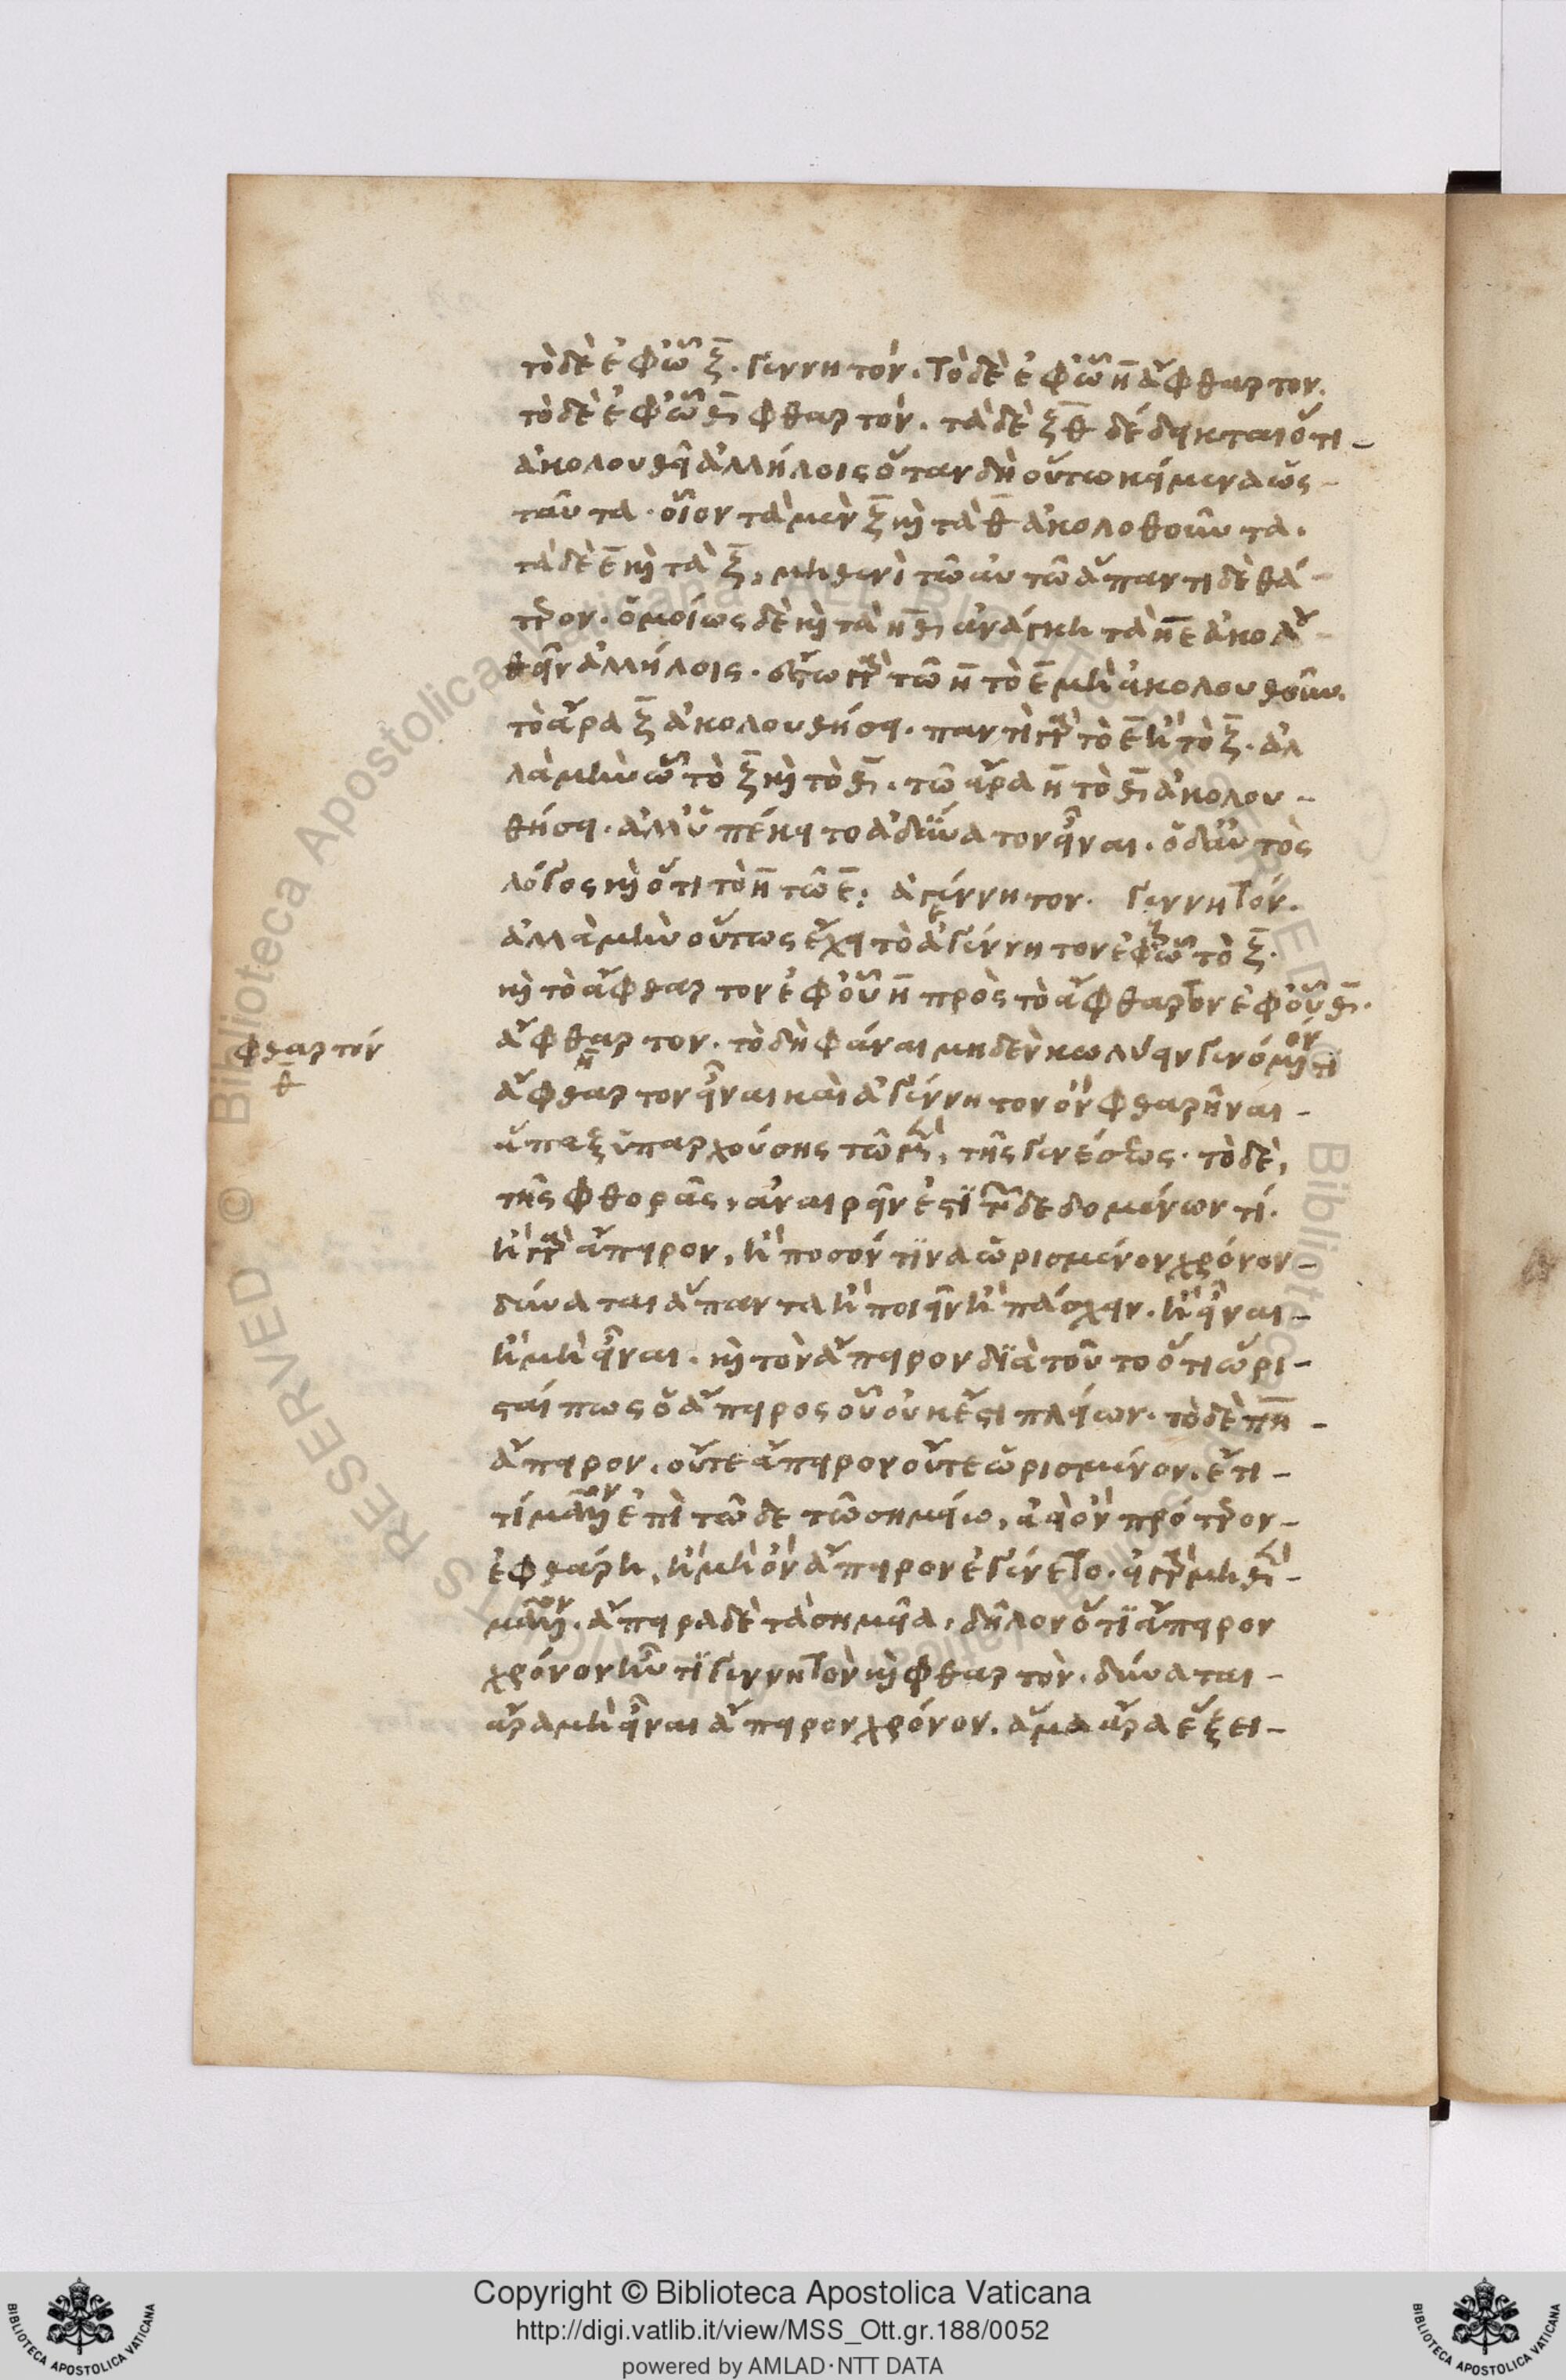 τὸ δὲ ἐφ' ὧ ξ̄. γεννητόν. τὸ δὲ ἐφ' ὧ η̄ ἄφθαρτον.
τὸ δὲ ἐφ' ὧ θ̄ φθαρτόν. τὰ δὲ ξ̄ θ̄ δέδεικται ὅτι
ἀκολουθεῖ ἀλλήλοις ὅταν δὴ οὕτω κείμενα ὡς
ταῦτα. οἷον τὰ μὲν ξ̄ κὶ τὰ θ̄ ἀκολοθοῦντα.
τὰ δὲ ε̄ κὶ τὰ ξ̄, μηθενὶ τῶ αὐτῶ ἅπαντι δὲ θά
τρον. ὁμοίως δὲ κὶ τὰ η̄ θ̄ ἀνάγκη τὰ η̄ ε̄ ἀκολ
θεῖν ἀλλήλοις. ἔστω γὰρ τῶ η̄ τὸ ε̄ μὴ ἀκολουθοῦν.
τὸ ἄρα ξ̄ ἀκολουθήσει. παντὶ γὰρ τὸ ε̄ ἢ τὸ ξ̄. ἀλ
λὰ μὴν ὧ τὸ ξ̄ κὶ τὸ θ̄. τῶ ἄρα η̄ τὸ θ̄ ἀκολου
θήσει. ἀλλ' ὑπέκειτο ἀδύνατον εἶναι. ὁ δ' αὐτὸς
λόγος κὶ ὅτι τὸ η̄ τῶ ε̄: ἀγέννητον. γεννητόν.
ἀλλὰ μὴν οὕτως ἔχει τὸ ἀγέννητον ἐφ' ὧ τὸ ξ̄.
κὶ τὸ ἄφθαρτον ἐφ' οὗ η̄ πρὸς τὸ ἄφθαρτον ἐφ' οὗ θ̄.
φθαρτόν
θ̄
ἄφθαρτον. τὸ δὴ φάναι μηδὲν κωλύειν γινόμενόν τι
ἄφθαρτον εἶναι καὶ ἀγέννητον ὂν φθαρῆναι
ἅπαξ ὑπαρχούσης τῶ μὲν, τῆς γενέσεως. τὸ δὲ,
τῆς φθορᾶς, ἀναιρεῖν ἐστὶ τῶν δεδομένων τί.
ἢ γὰρ ἄπειρον, ἢ ποσόν τινα ὡρισμένον χρόνον
δύναται ἅπαντα ἢ ποιεῖν ἢ πάσχειν. ἢ εἶναι
ἢ μὴ εἶναι. κὶ τὸν ἄπειρον διὰ τοῦτο ὅτι ὥρι
σταί πως ὁ ἄπειρος οὗ οὐκ ἔστι πλείων. τὸ δὲ πῆ
ἄπειρον. οὔτε ἄπειρον οὔτε ὡρισμένον. ἔτι
τί μᾶλλον ἐπὶ τῶδε τῶ σημείω, ἀεὶ ὂν πρότερον
ἐφθάρη, ἢ μὴ ὂν ἄπειρον ἐγένετο. εἰ γὰρ μηθὲν
μᾶλλον. ἄπειρα δὲ τὰ σημεῖα, δῆλον ὅτι ἄπειρον
χρόνον ἦν τι γεννητὸν κὶ φθαρτόν. δύναται
ἄρα μὴ εἶναι ἄπειρον χρόνον. ἅμα ἄρα ἕξει
Copyright © Biblioteca Apostolica Vaticana
http://digi.vatlib.it/view/MSS_Ott.gr.188/0052
powered by AMLAD·NTT DATA